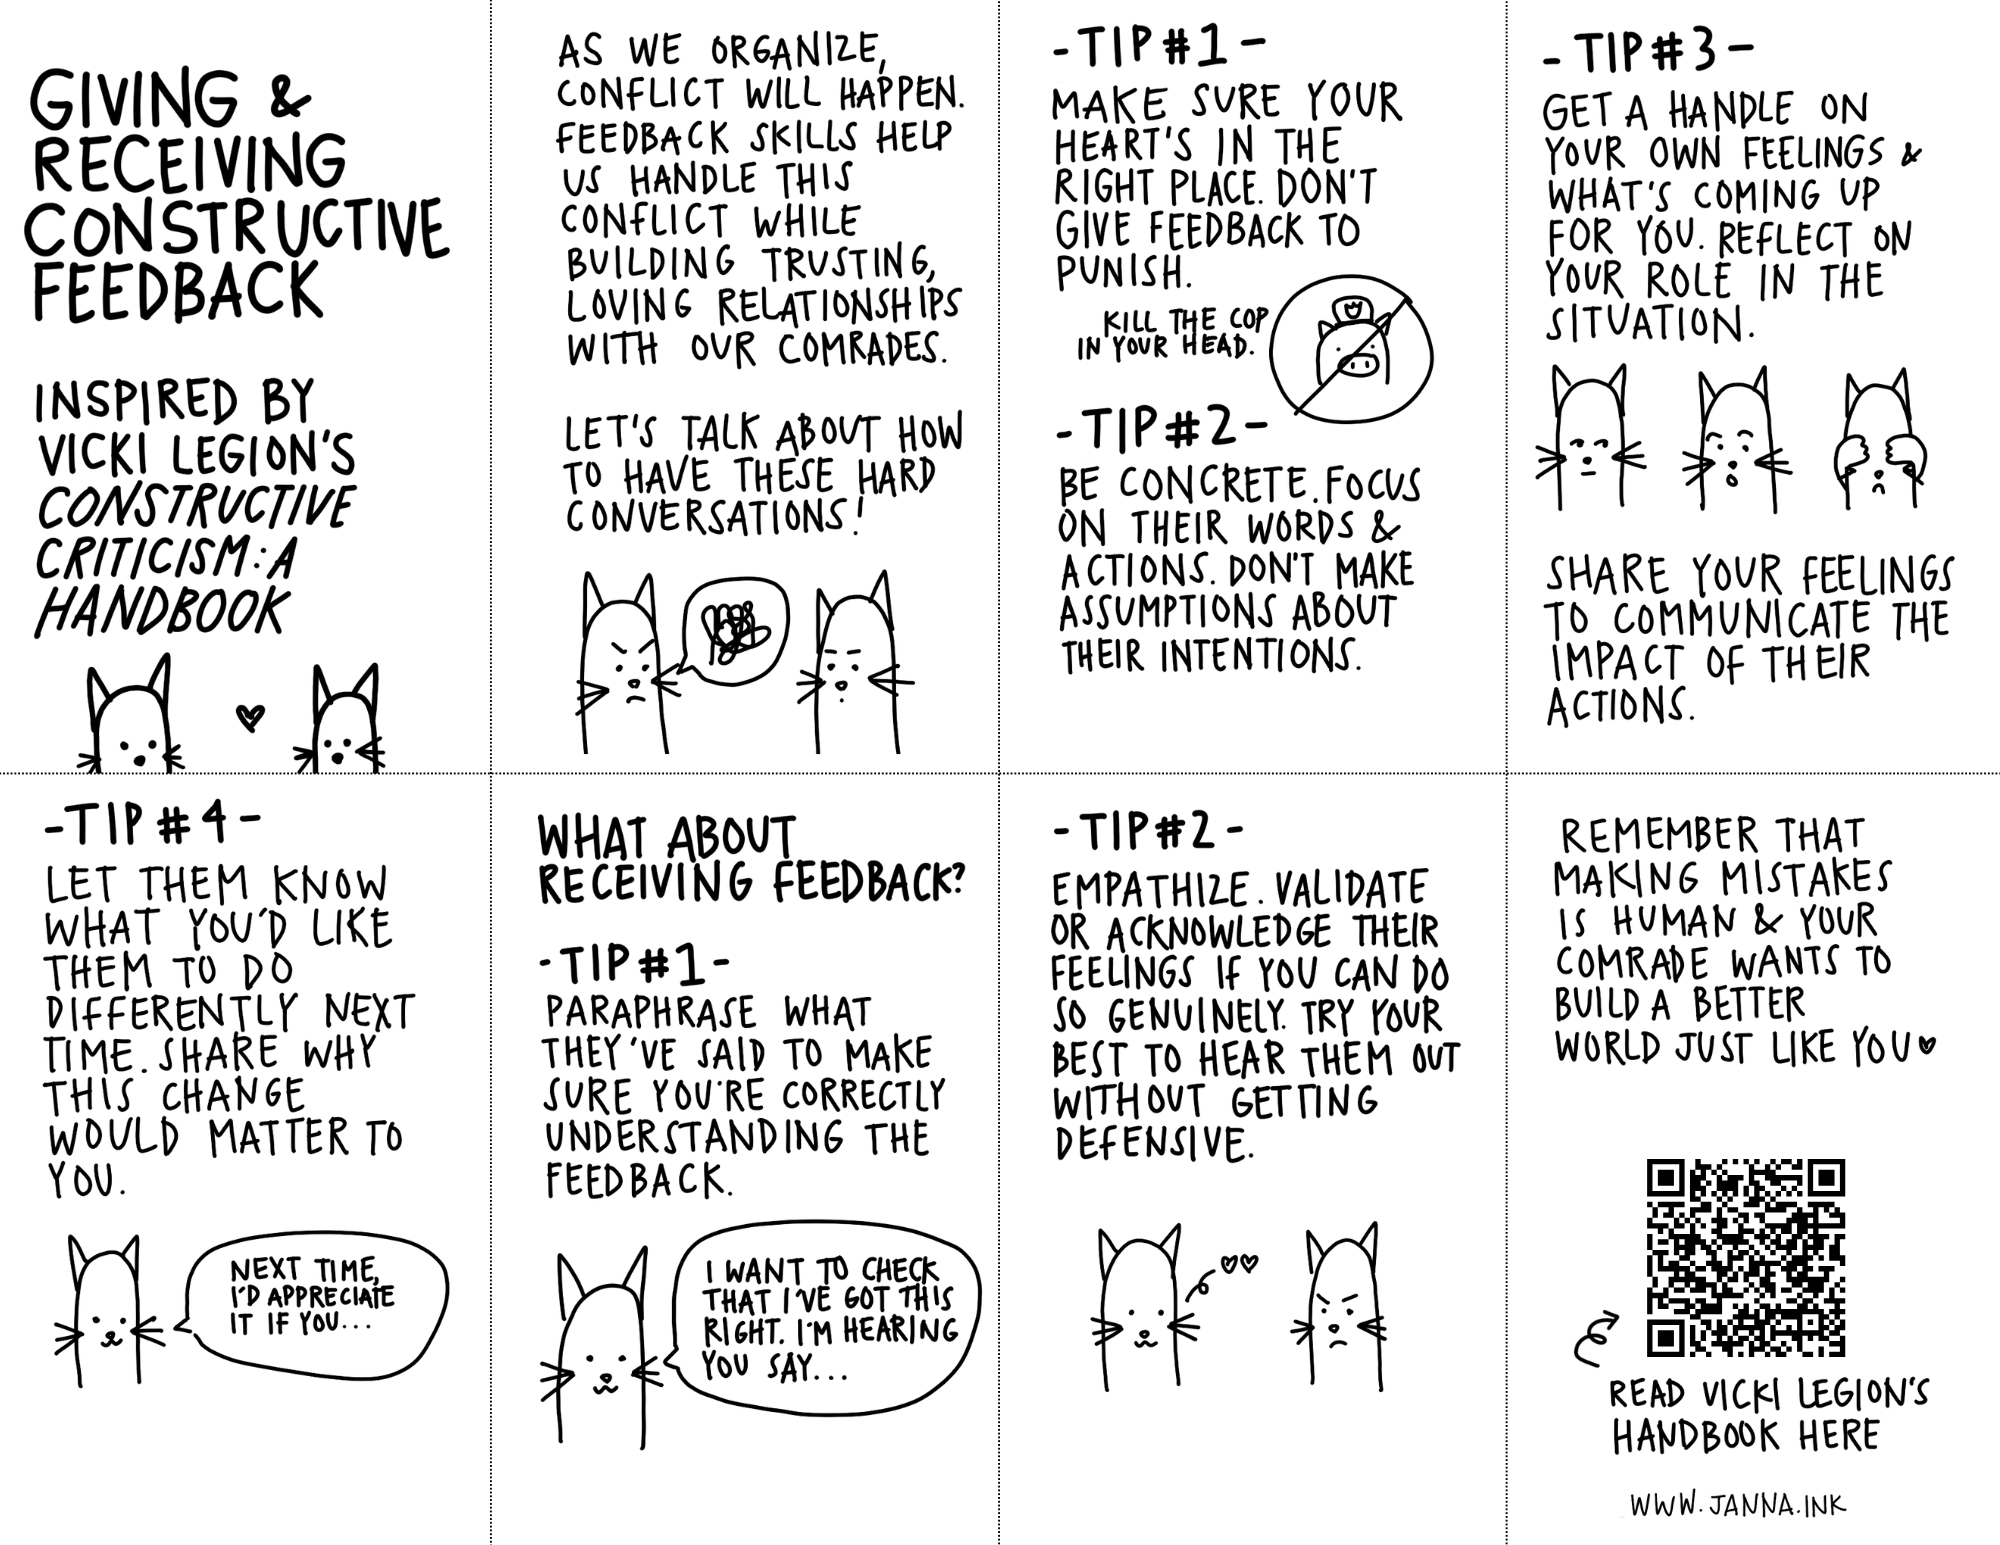 GIVING &
RECEIVING
CONSTRUCTIVE
FEEDBACK
INSPIRED BY
VICKI LEGION'S
CONSTRUCTIVE
CRITICISM: A
HANDBOOK
AS WE ORGANIZE,
CONFLICT WILL HAPPEN.
FEEDBACK SKILLS HELP
US HANDLE THIS
CONFLICT WHILE
BUILDING TRUSTING,
LOVING RELATIONSHIPS
WITH OUR COMRADES.
LET'S TALK ABOUT HOW
TO HAVE THESE HARD
CONVERSATIONS!
-TIP #1-
MAKE SURE YOUR
HEART'S IN THE
RIGHT PLACE. DON'T
GIVE FEEDBACK TO
PUNISH.
KILL THE COP
IN YOUR HEAD.
-TIP #2-
BE CONCRETE. FOCUS
ON THEIR WORDS &
ACTIONS. DON'T MAKE
ASSUMPTIONS ABOUT
THEIR INTENTIONS.
-TIP #3-
GET A HANDLE ON
YOUR OWN FEELINGS &
WHAT'S COMING UP
FOR YOU. REFLECT ON
YOUR ROLE IN THE
SITUATION.
SHARE YOUR FEELINGS
TO COMMUNICATE THE
IMPACT OF THEIR
ACTIONS.
-TIP #4-
LET THEM KNOW
WHAT YOU'D LIKE
THEM TO DO
DIFFERENTLY NEXT
TIME. SHARE WHY
THIS CHANGE
WOULD MATTER TO
YOU.
NEXT TIME,
I'D APPRECIATE
IT IF YOU...
WHAT ABOUT
RECEIVING FEEDBACK?
-TIP #1-
PARAPHRASE WHAT
THEY'VE SAID TO MAKE
SURE YOU'RE CORRECTLY
UNDERSTANDING THE
FEEDBACK.
I WANT TO CHECK
THAT I'VE GOT THIS
RIGHT. I'M HEARING
YOU SAY...
-TIP #2-
EMPATHIZE. VALIDATE
OR ACKNOWLEDGE THEIR
FEELINGS IF YOU CAN DO
SO GENUINELY. TRY YOUR
BEST TO HEAR THEM OUT
WITHOUT GETTING
DEFENSIVE.
REMEMBER THAT
MAKING MISTAKES
IS HUMAN & YOUR
COMRADE WANTS TO
BUILD A BETTER
WORLD JUST LIKE YOU♥
READ VICKI LEGION'S
HANDBOOK HERE
WWW.JANNA.INK